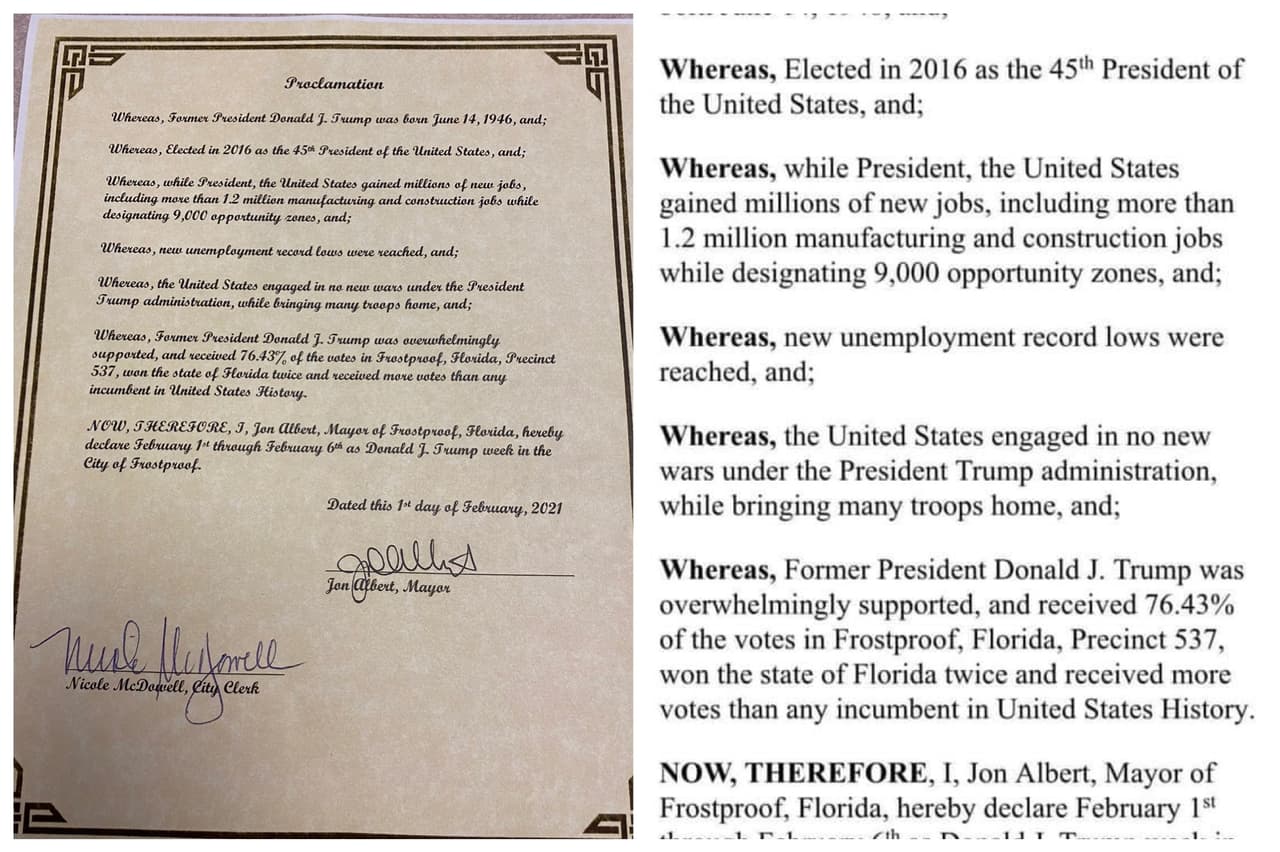 Proclamation
Whereas, Former President Donald J. Trump was born June 14, 1946, and;
Whereas, Elected in 2016 as the 45th President of the United States, and;
Whereas, while President, the United States gained millions of new jobs,
including more than 1.2 million manufacturing and construction jobs while
designating 9,000 opportunity zones, and;
Whereas, new unemployment record lows were reached, and;
Whereas, the United States engaged in no new wars under the President
Trump administration, while bringing many troops home, and;
Whereas, Former President Donald J. Trump was overwhelmingly
supported, and received 76.43% of the votes in Frostproof, Florida, Precinct
537, won the state of Florida twice and received more votes than any
incumbent in United States History.
NOW, THEREFORE, I, Jon Albert, Mayor of Frostproof, Florida, hereby
declare February 1st through February 6th as Donald J. Trump week in the
City of Frostproof.
Dated this 1st day of February, 2021
Jon Albert, Mayor
Nicole McDowell
Nicole McDowell, City Clerk
Whereas, Elected in 2016 as the 45th President of
the United States, and;
Whereas, while President, the United States
gained millions of new jobs, including more than
1.2 million manufacturing and construction jobs
while designating 9,000 opportunity zones, and;
Whereas, new unemployment record lows were
reached, and;
Whereas, the United States engaged in no new
wars under the President Trump administration,
while bringing many troops home, and;
Whereas, Former President Donald J. Trump was
overwhelmingly supported, and received 76.43%
of the votes in Frostproof, Florida, Precinct 537,
won the state of Florida twice and received more
votes than any incumbent in United States History.
NOW, THEREFORE, I, Jon Albert, Mayor of
Frostproof, Florida, hereby declare February 1st